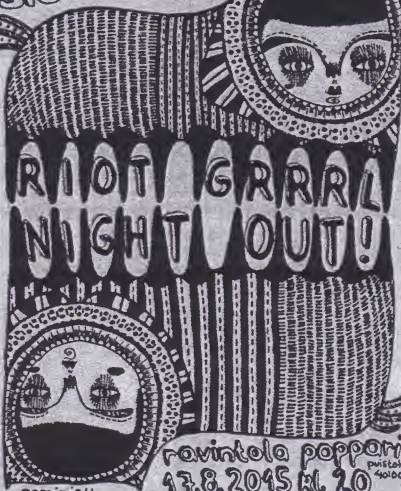 RIOT GRRRL
NIGHT OUT!
ravintola poppari
17.8.2015 kl. 20